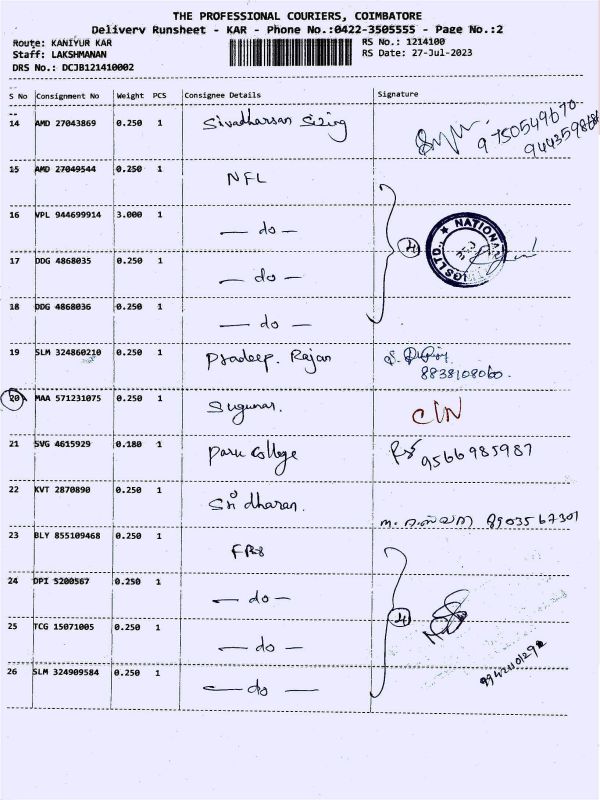 THE PROFESSIONAL COURIERS, COIMBATORE
Delivery Runsheet - KAR - Phone No.:0422-3505555 - Page No.:2
Route: KANIYUR KAR RS No.: 1214100
Staff: LAKSHMANAN RS Date: 27-Jul-2023
DRS No.: DCJB121410002
S No Consignment No Weight PCS Consignee Details Signature
14 AMD 27043869 0.250 1 Sivadharsan Sizing 9750549670
15 AMD 27049544 0.250 1 NFL
16 VPL 944699914 3.000 1 — do — 4 NATIONAL LTD.
17 DDG 4868035 0.250 1 — do —
18 DDG 4868036 0.250 1 — do —
19 SLM 324860210 0.250 1 Pradeep. Rajan
8838108060.
20 MAA 571231075 0.250 1 Sugunar. C/N
21 SVG 4615929 0.180 1 Paru College 9566985987
22 KVT 2870890 0.250 1 Sri dharan. 8903567301
23 BLY 855109468 0.250 1
24 DPI 5200567 0.250 1 — do — 4
25 TCG 15071005 0.250 1 — do —
26 SLM 324909584 0.250 1 — do —